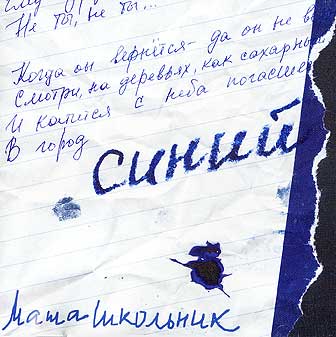 Не ты, не ты...
Когда он вернётся - да он не в
Смотри, на деревьях, как сахарный
И катится с неба погасшее
В город
синий
Маша Школьник